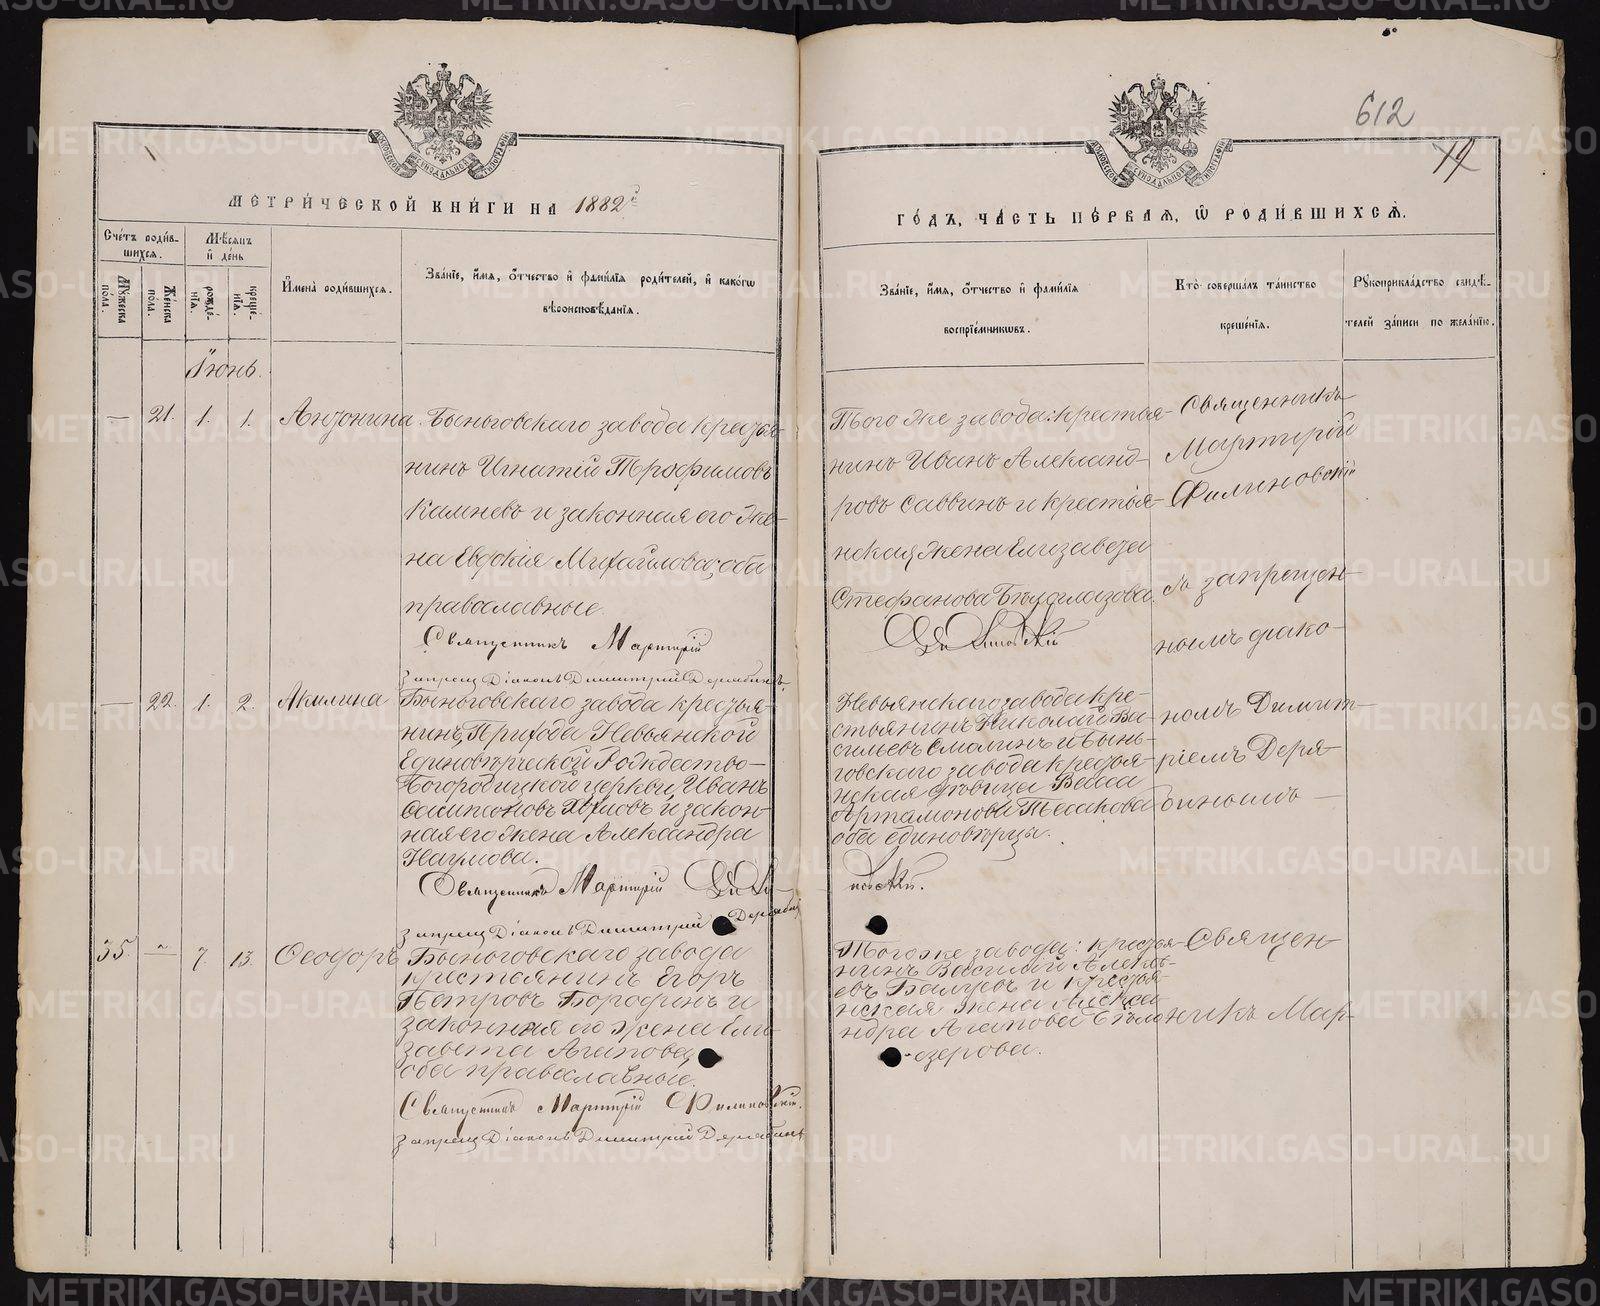 612
14
МЕТРИ́ЧЕСКОЙ КНИ́ГИ НА 1882й
ГО́ДЪ, ЧА́СТЬ ПЕ́РВАЯ, Ѡ РОДИ́ВШИХСЯ.
Сче́тъ роди́в-
шихся.
Мѣ́сяцъ
и де́нь
Му́жеска пола.
Же́нска пола.
рожде́-
нїя.
креще́-
нїя.
И҆мена̀ роди́вшихся.
Зва́нїе, и҆́мя, о҆́тчество и҆ фами́лїя роди́телей, и҆ како́гѡ
вѣроисповѣ́данїя.
Зва́нїе, и҆́мя, о҆́тчество и҆ фами́лїя
воспрїе́мникѡвъ.
Кто̀ соверша́лъ та́инство
креще́нїя.
Рꙋкоприкла́дство свидѣ́-
телей за́писи по жела́нїю.
Іюнь.
— 21. 1. 1. Антонина
Быньговскаго завода крестья-
нинъ Игнатій Трофимовъ
и законная его же-
на Евдокія Михайлова; оба
православные.
Священникъ Мартирій
запрещ Діаконъ Димитрій Дерябинъ
Того же завода: крестья-
нинъ Иванъ Александ-
ровъ Саввинъ и крестья-
нская жена Елизавета
Стефанова
Филиновскій
Священникъ
Мартирій
Филиновскій
съ запрещен-
нымъ діако-
номъ Димит-
ріемъ Деря-
бинымъ —
— 22. 1. 2. Акилина
Быньговскаго завода крестья-
нинъ, Прихода Невьянской
Единоверческой Рождество-
Богородицкой церкви, Иванъ
и закон-
ная его жена Александра
Наумова.
Священникъ Мартирій Фили-
новскій.
запрещ Діаконъ Димитрій Дерябинъ
Невьянскаго завода кре-
стьянинъ Николай Ва-
сильевъ Смолинъ и Бынь-
говскаго завода крестья-
нская девица Васса
Артамонова
оба единоверцы.
35. — 7. 13. Ѳеодоръ
Быньговскаго завода
крестьянинъ Егоръ
Петровъ Бородинъ и
законная его жена Ели-
завета Агапова,
оба православные.
Священникъ Мартирій Филиновскій.
запрещ Діаконъ Димитрій Дерябинъ
Того же завода: крестья-
нинъ Василій Алексѣ-
евъ и крестья-
нская жена Алекса-
ндра Агапова Бѣло-
озерова.
Священ-
никъ Мар-
METRIKI.GASO-URAL.RU